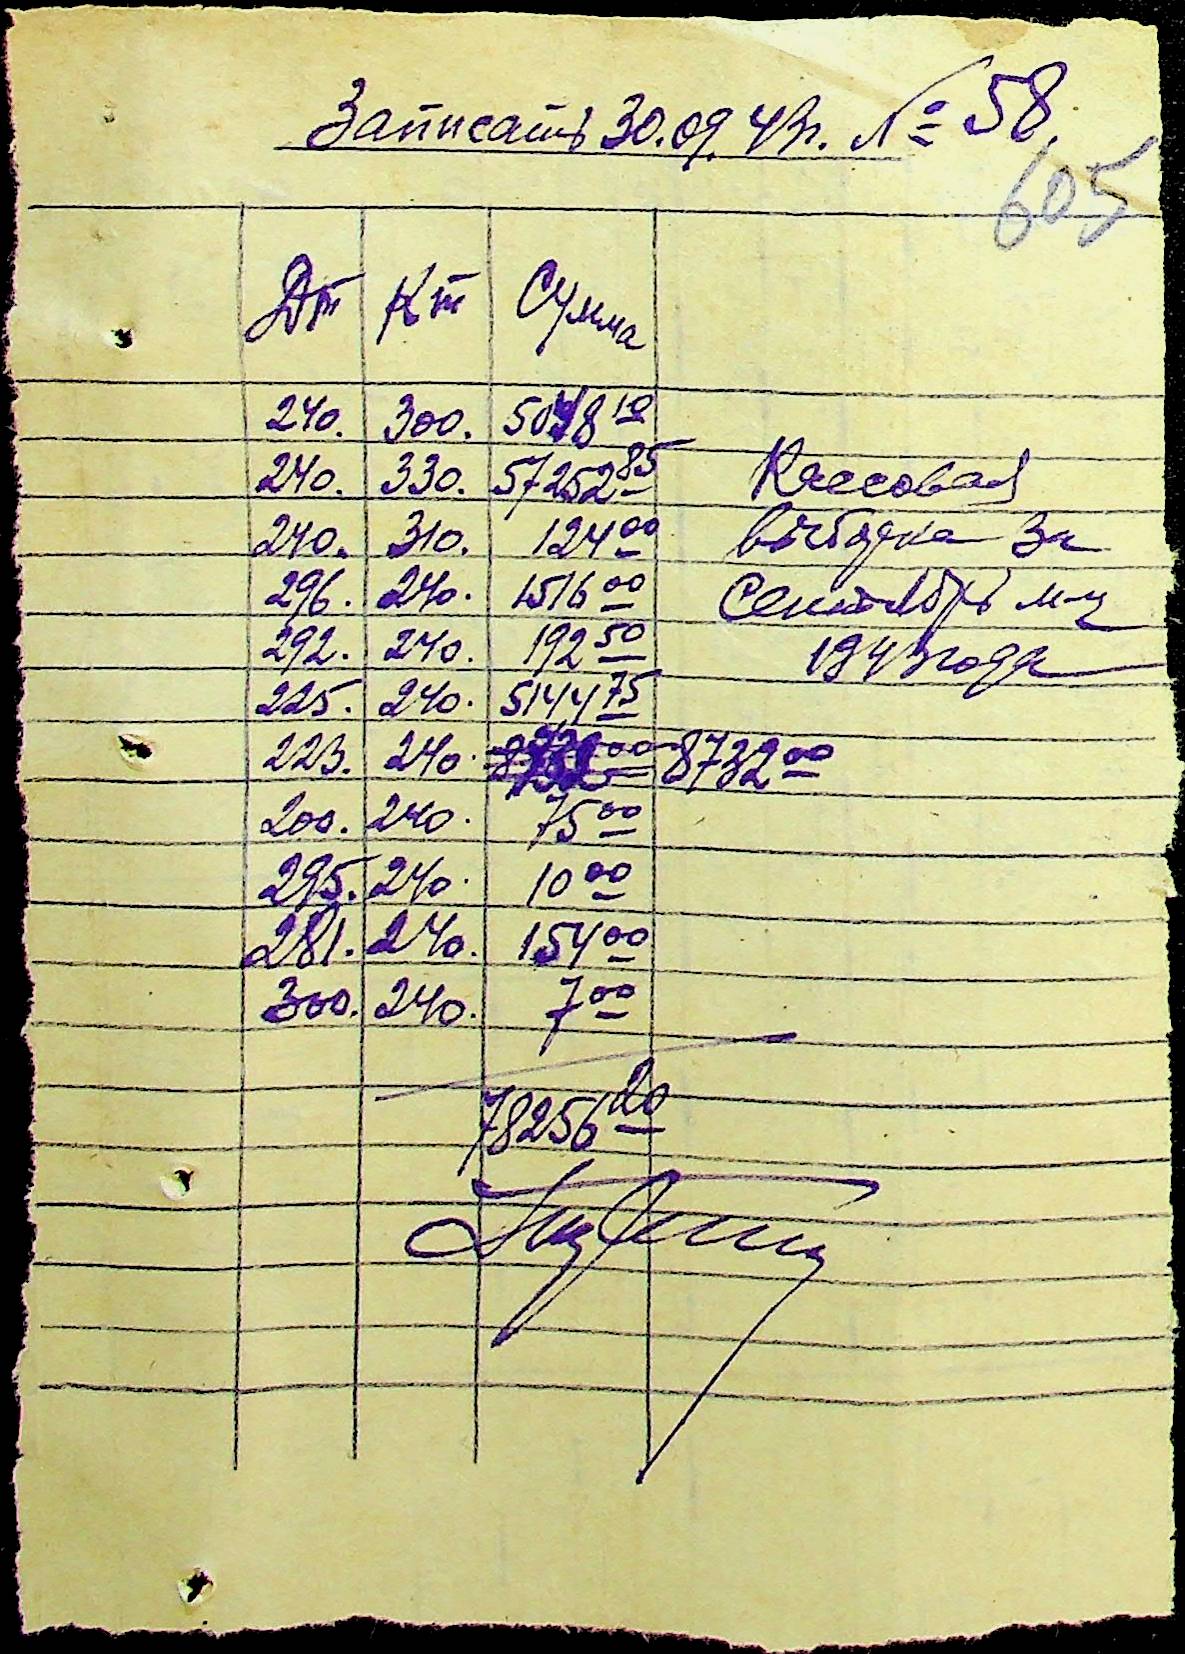 Записать 30.09.43г. № 58.
605
Дт Кт Сумма
240. 300. 5048 10
240. 330. 57252 85 Кассовая
240. 310. 124 00 выборка за
296. 240. 1516 00 Сентябрь м-ц
292. 240. 192 50 1943 года
225. 240. 5144 75
223. 240. 8732 00
200. 240. 75 00
295. 240. 10 00
281. 240. 154 00
300. 240. 7 00
78256 20